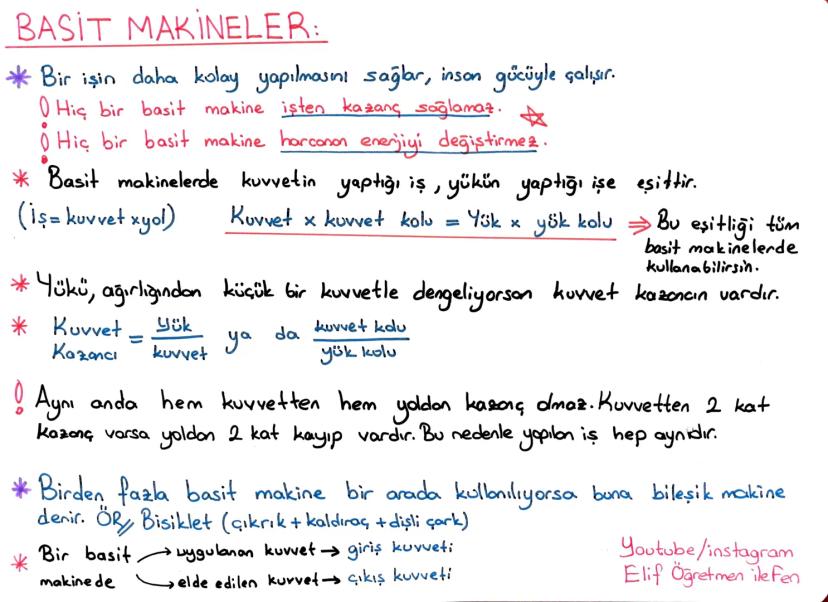 BASİT MAKİNELER:
* Bir işin daha kolay yapılmasını sağlar, insan gücüyle çalışır.
! Hiç bir basit makine işten kazanç sağlamaz. ☆
! Hiç bir basit makine harcanan enerjiyi değiştirmez.
* Basit makinelerde kuvvetin yaptığı iş, yükün yaptığı işe eşittir.
(İş = kuvvet x yol) Kuvvet x kuvvet kolu = Yük x yük kolu ⇒ Bu eşitliği tüm
basit makinelerde
kullanabilirsin.
* Yükü, ağırlığından küçük bir kuvvetle dengeliyorsan kuvvet kazancın vardır.
* Kuvvet Kazancı = Yük / kuvvet ya da kuvvet kolu / yük kolu
! Aynı anda hem kuvvetten hem yoldan kazanç olmaz. Kuvvetten 2 kat
kazanç varsa yoldan 2 kat kayıp vardır. Bu nedenle yapılan iş hep aynıdır.
* Birden fazla basit makine bir arada kullanılıyorsa buna bileşik makine
denir. ÖR// Bisiklet (çıkrık + kaldıraç + dişli çark)
* Bir basit makinede → uygulanan kuvvet → giriş kuvveti
→ elde edilen kuvvet → çıkış kuvveti
Youtube/instagram
Elif Öğretmen ile Fen